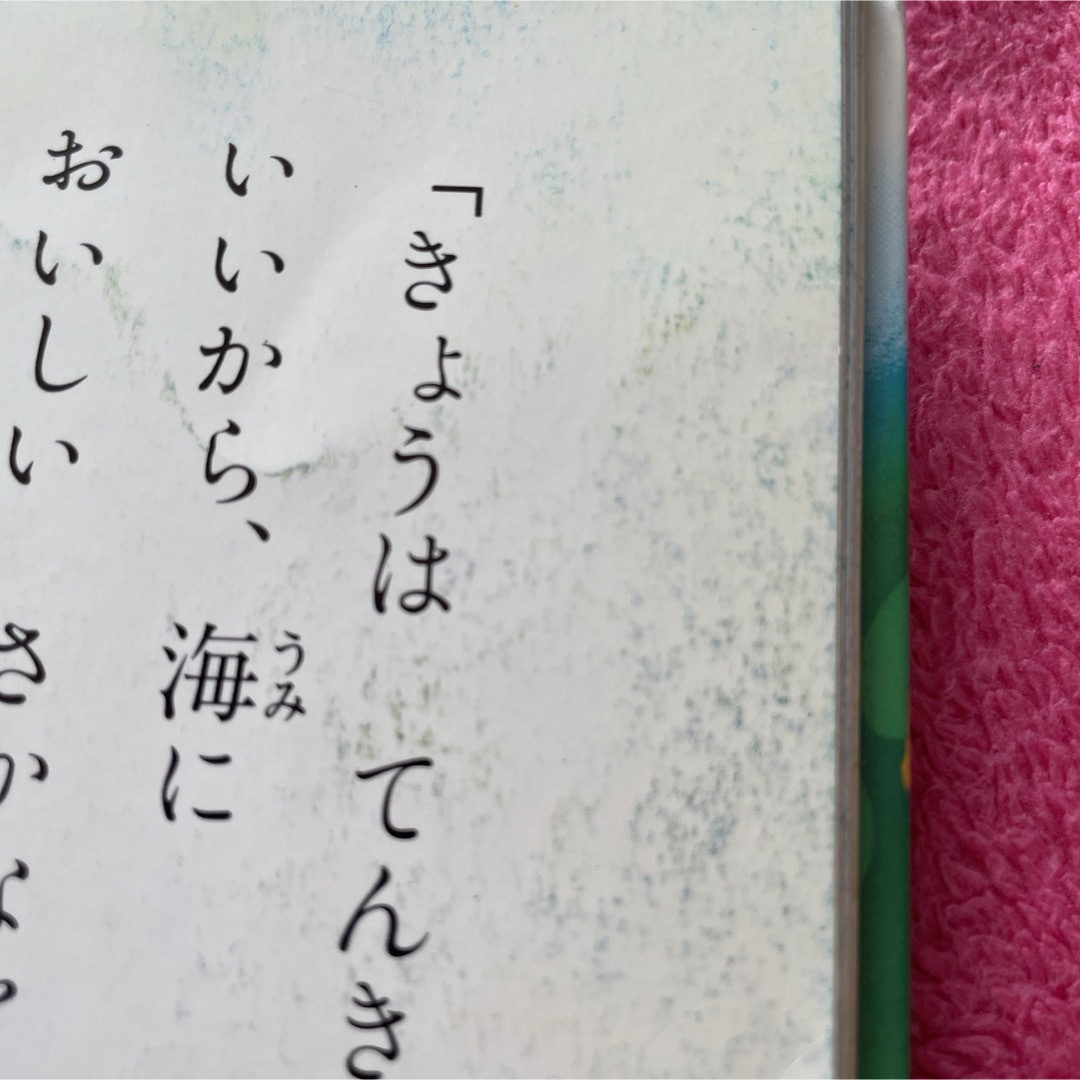 「きょうは てんき
いいから、海に
うみ
おいしい さかな